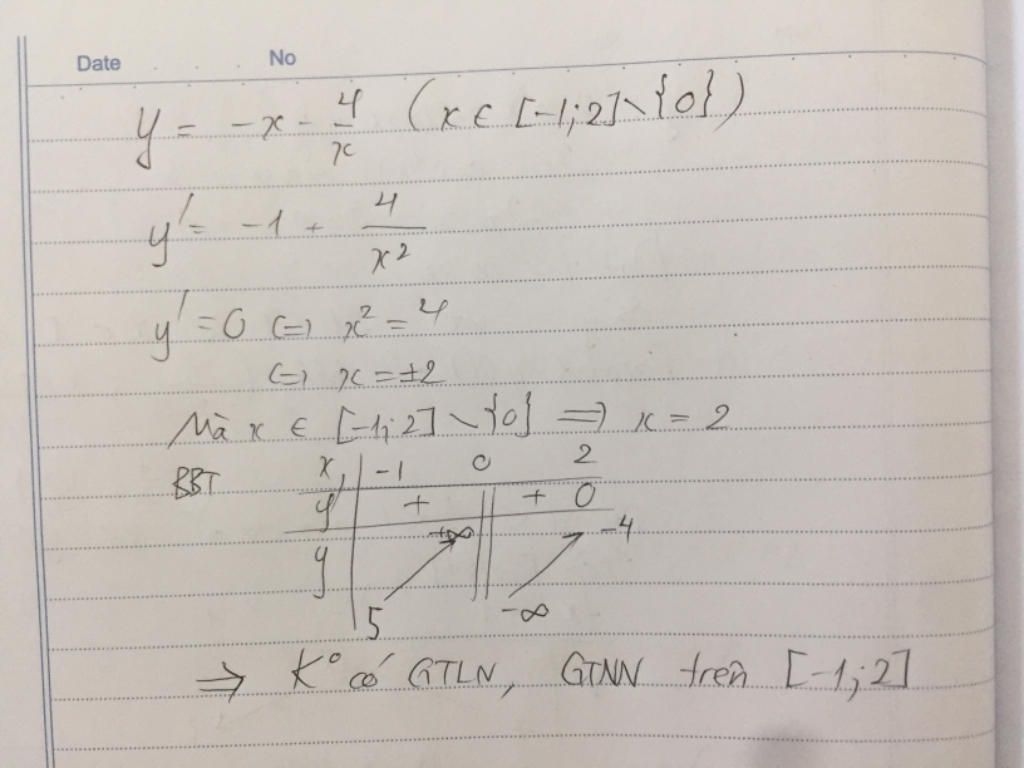 Date No
y = -x - 4/x (x ∈ [-1;2] \ {0})
y' = -1 + 4/x²
y' = 0 (=) x² = 4
(=) x = ±2
Mà x ∈ [-1;2] \ {0} => x = 2
BBT x -1 0 2
y' + || + 0
y 5 +∞ || -∞ -4
=> K° có GTLN, GTNN trên [-1;2]